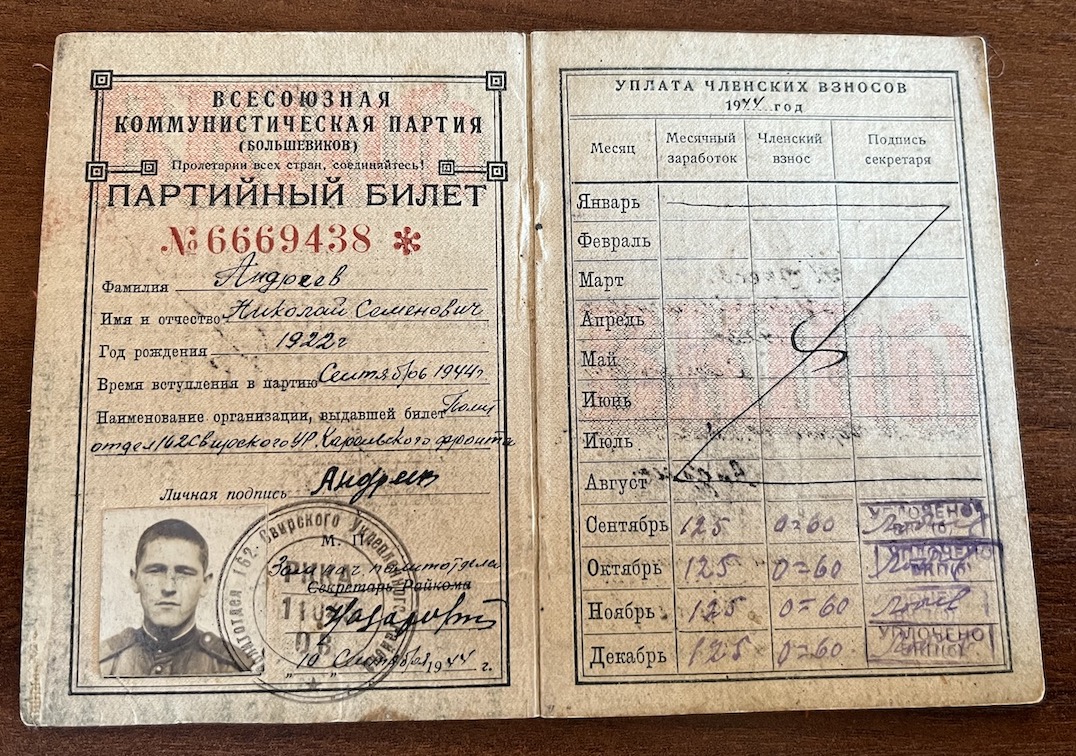 ВСЕСОЮЗНАЯ
КОММУНИСТИЧЕСКАЯ ПАРТИЯ
(БОЛЬШЕВИКОВ)
Пролетарии всех стран, соединяйтесь!
ПАРТИЙНЫЙ БИЛЕТ
№ 6669438 *
Фамилия Андреев
Имя и отчество Николай Семенович
Год рождения 1922 г
Время вступления в партию Сентябрь 1944 г
Наименование организации, выдавшей билет Полит
отдел 162 Свирского УР. Карельского фронта
Личная подпись Андреев
М. П.
Зам нач политотдела
Секретарь Райкома
Политотдел 162 Свирского
РККА
„10" Сентября 1944 г.
УПЛАТА ЧЛЕНСКИХ ВЗНОСОВ
1944 год
Месяц Месячный заработок Членский взнос Подпись секретаря
Январь
Февраль
Март
Апрель
Май
Июнь
Июль
Август
Сентябрь 125 0=60 УПЛОЧЕНО
Октябрь 125 0=60 УПЛОЧЕНО ВКП(б)
Ноябрь 125 0=60
Декабрь 125 0=60 УПЛОЧЕНО ВКП(б)